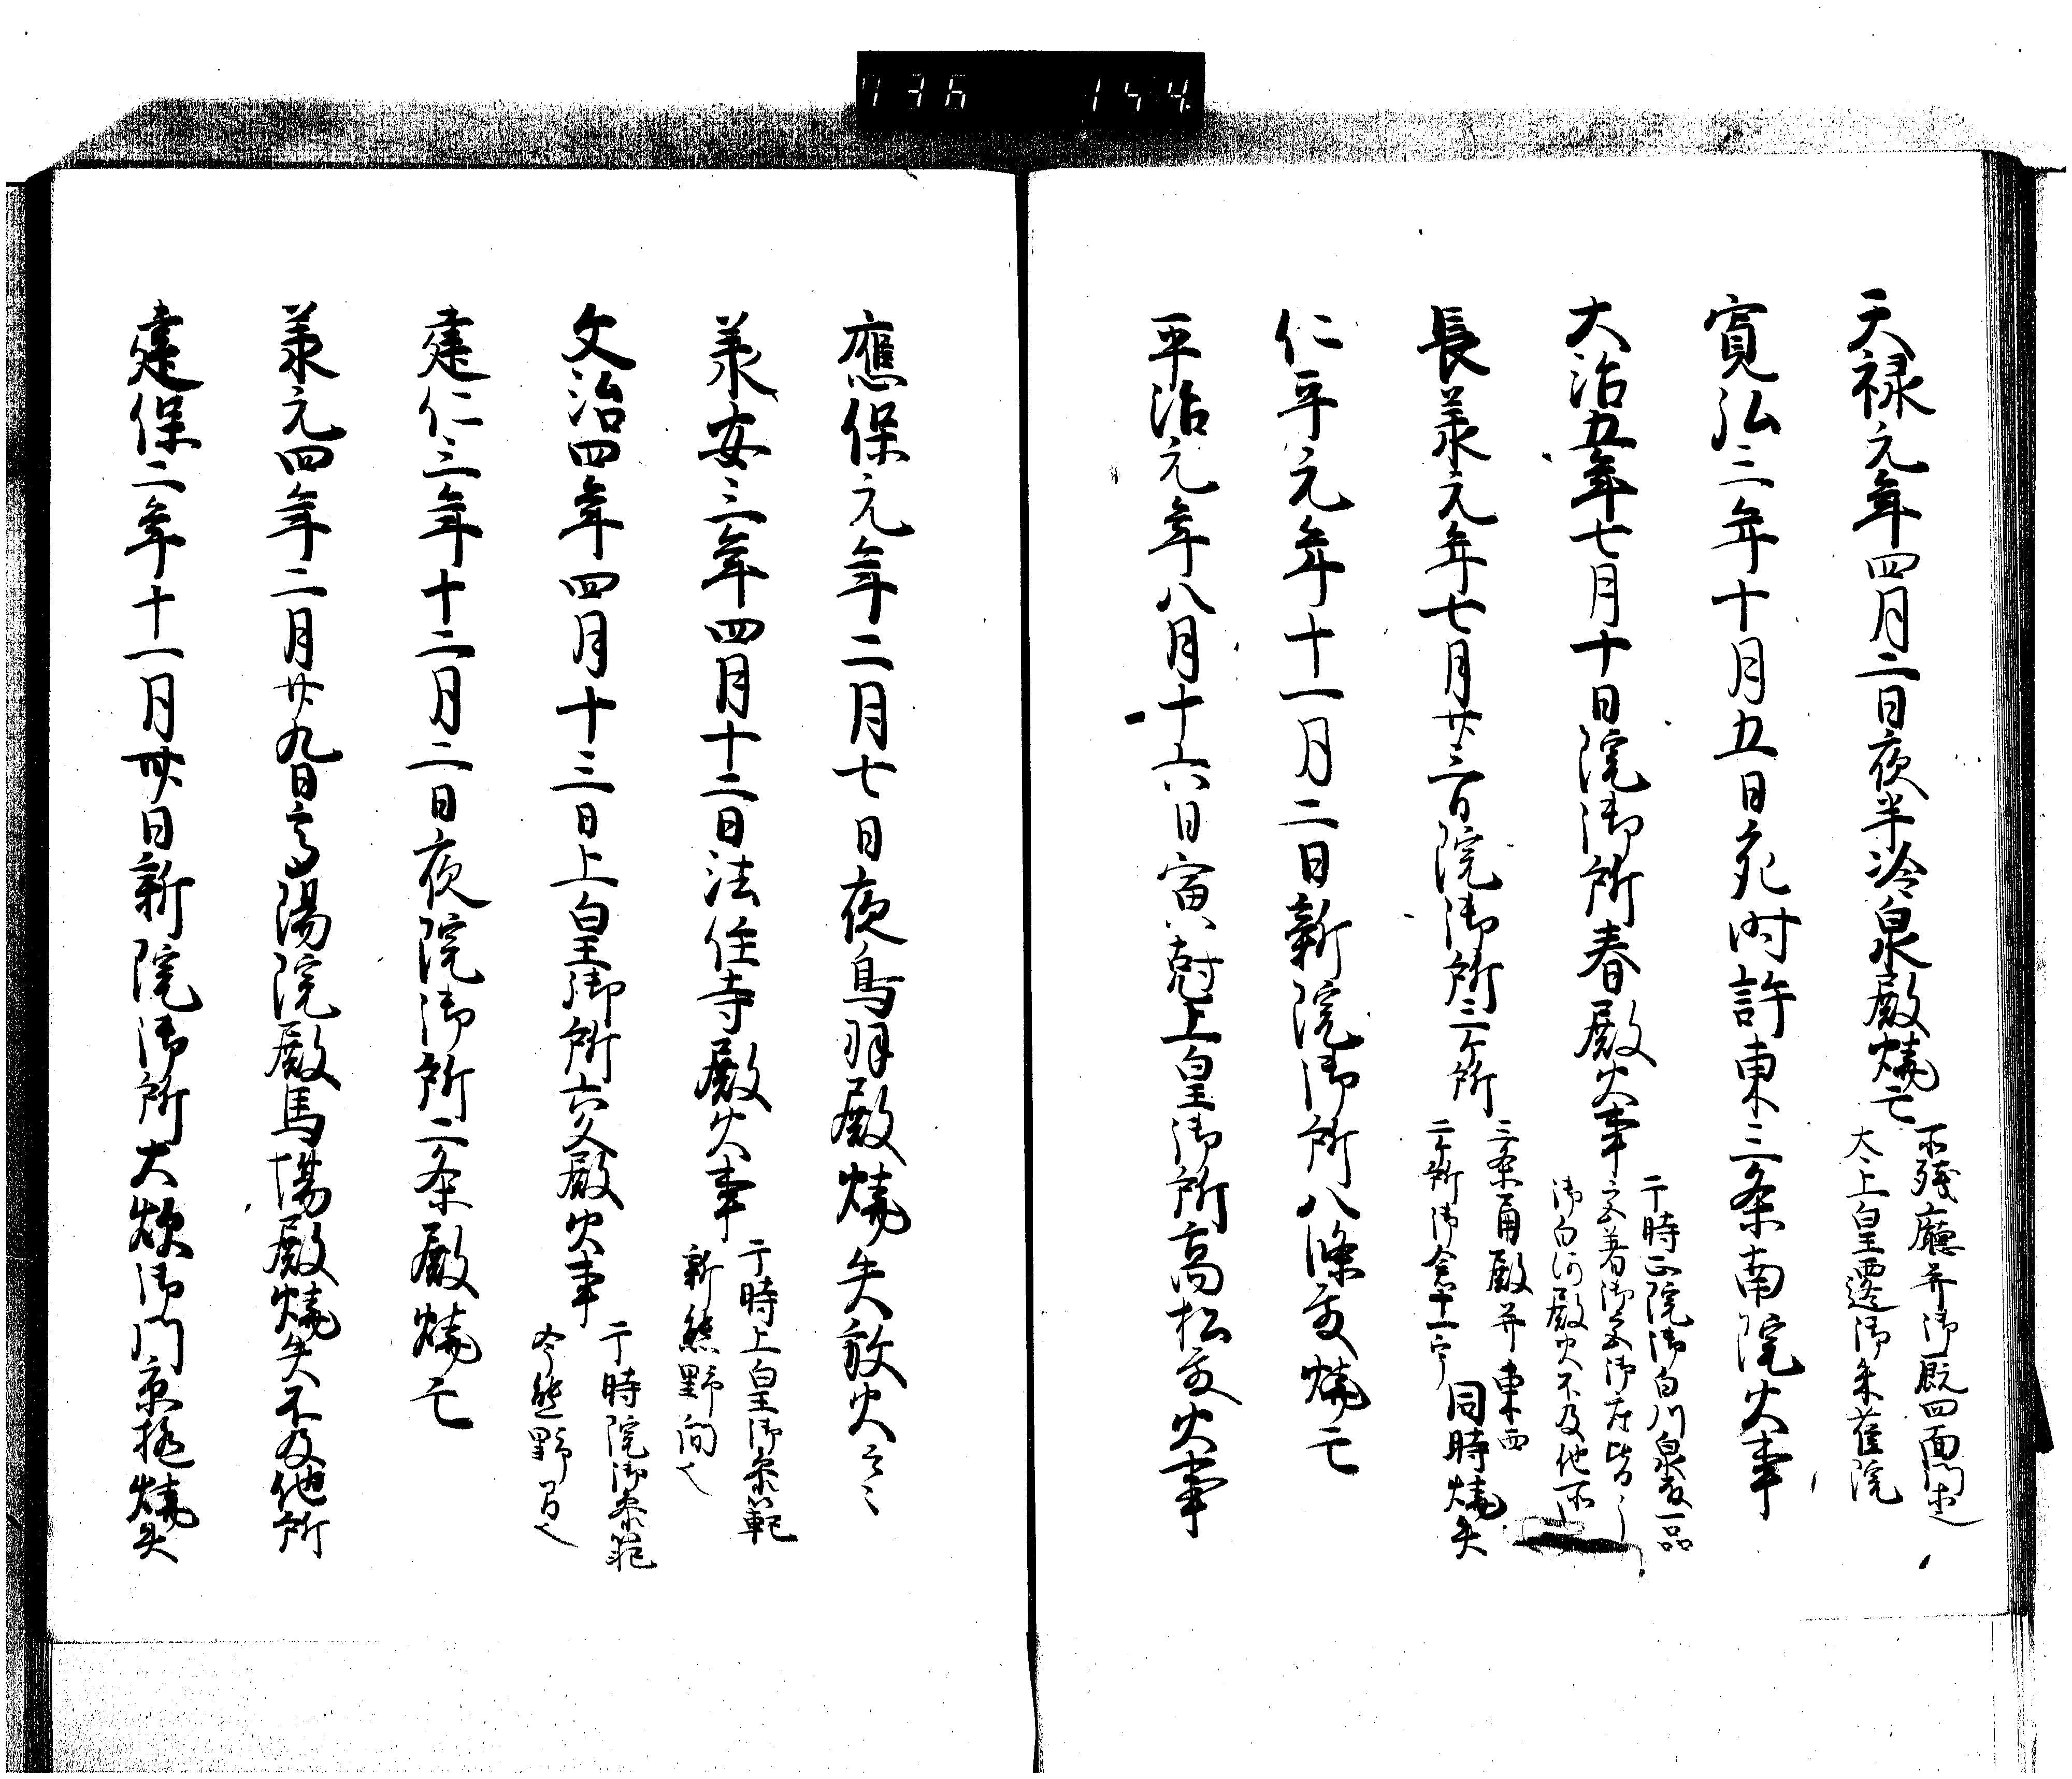 736 154
天禄元年四月二日夜半冷泉殿燒亡
不残廳并御厩四面門也
太上皇遷御朱雀院
寛弘三年十月五日夘時許東三条南院火事
大治五年七月十日院御所春殿火事
于時正院御白川泉殿一品
御白河殿火不及他所
長承元年七月廿三日院御所三ケ所
三条扇殿并東西
二ケ所御倉十一宇
同時燒失
仁平元年十一月二日新院御所八條殿燒亡
平治元年八月十六日寅尅上皇御所高松殿火事
應保元年二月七日夜鳥羽殿燒失放火云々
承安三年四月十二日法住寺殿火事
于時上皇御参籠
新熊野間也
文治四年四月十三日上皇御所六条殿火事
于時院御参籠
今熊野間也
建仁三年十二月二日夜院御所二条殿燒亡
承元四年二月廿九日高陽院殿馬場殿燒失不及他所
建保二年十一月卅日新院御所大炊御門京極燒失